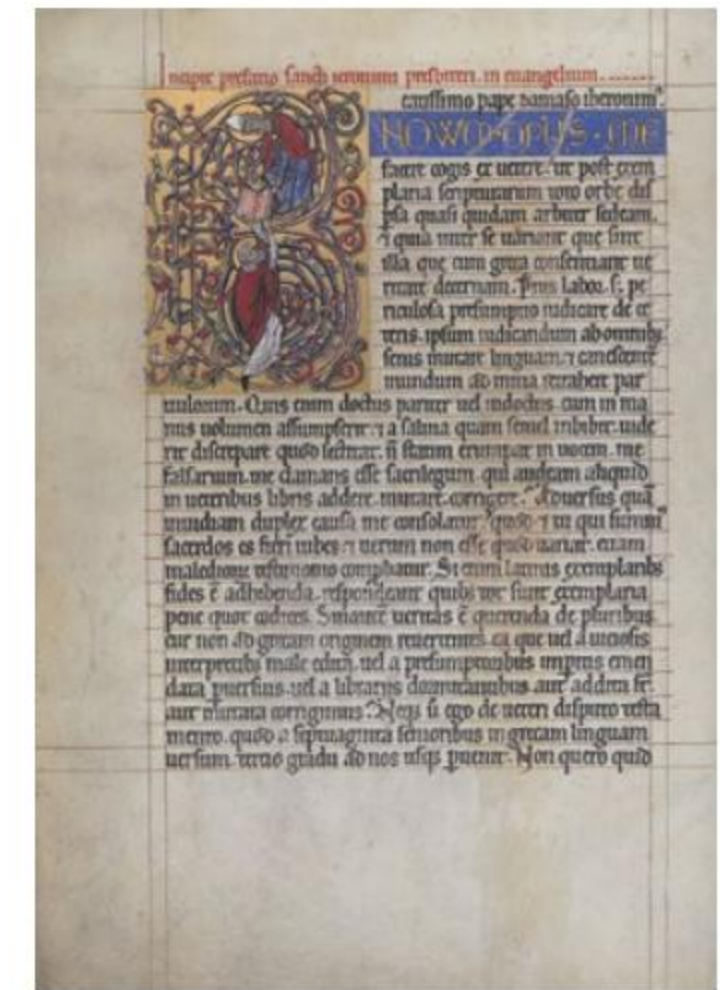 Incipit prefatio sancti ieronimi presbiteri in euangelium
carissimo pape damaso iheronimꝰ.
NOWM·OPUS·ME
facere cogis ex uetere. ut post exem
plaria scripturarum toto orbe dis
psa quasi quidam arbiter sedeam.
⁊ quia inter se uariant que sint
illa que cum greca consentiant ue
ritate decernam. Pius labor. s; pe
riculosa presumptio iudicare de ce
teris. ipsum iudicandum ab omnibꝫ
senis mutare linguam. ⁊ canescentē
mundum ad initia retrahere par
uulorum. Quis enim doctus pariter uel indoctus. cum in ma
nus uolumen assumpserit. ⁊ a saliua quam semel inbibit. uide
rit discrepare quod lectitat. ñ statim erumpat in uocem. me
falsarium. me clamans esse sacrilegum. qui audeam aliquid
in ueteribus libris addere. mutare. corrigere. Aduersus quā
inuidiam duplex causa me consolatur. quod ⁊ tu qui summꝰ
sacerdos es fieri iubes. ⁊ uerum non esse quod uariat. etiam
testimonio Si enim latinis exemplaribꝫ
fides ē adhibenda. respondeant quibꝫ tot sunt exemplaria
pene quot codices. Sin autē ueritas ē querenda de pluribus
cur non ad grecam originem reuertentes. ea que uel a uiciosis
interpretibꝫ male edita. uel a presumptoribus imperitis emen
data puersius. uel a librariis dormitantibus aut addita st.
aut mutata corrigimus. Neqꝫ u ego de ueteri disputo testa
mento. quod a septuaginta senioribus in grecam linguam
uersum. tertio gradu ad nos usqꝫ puenit. Non quero quid